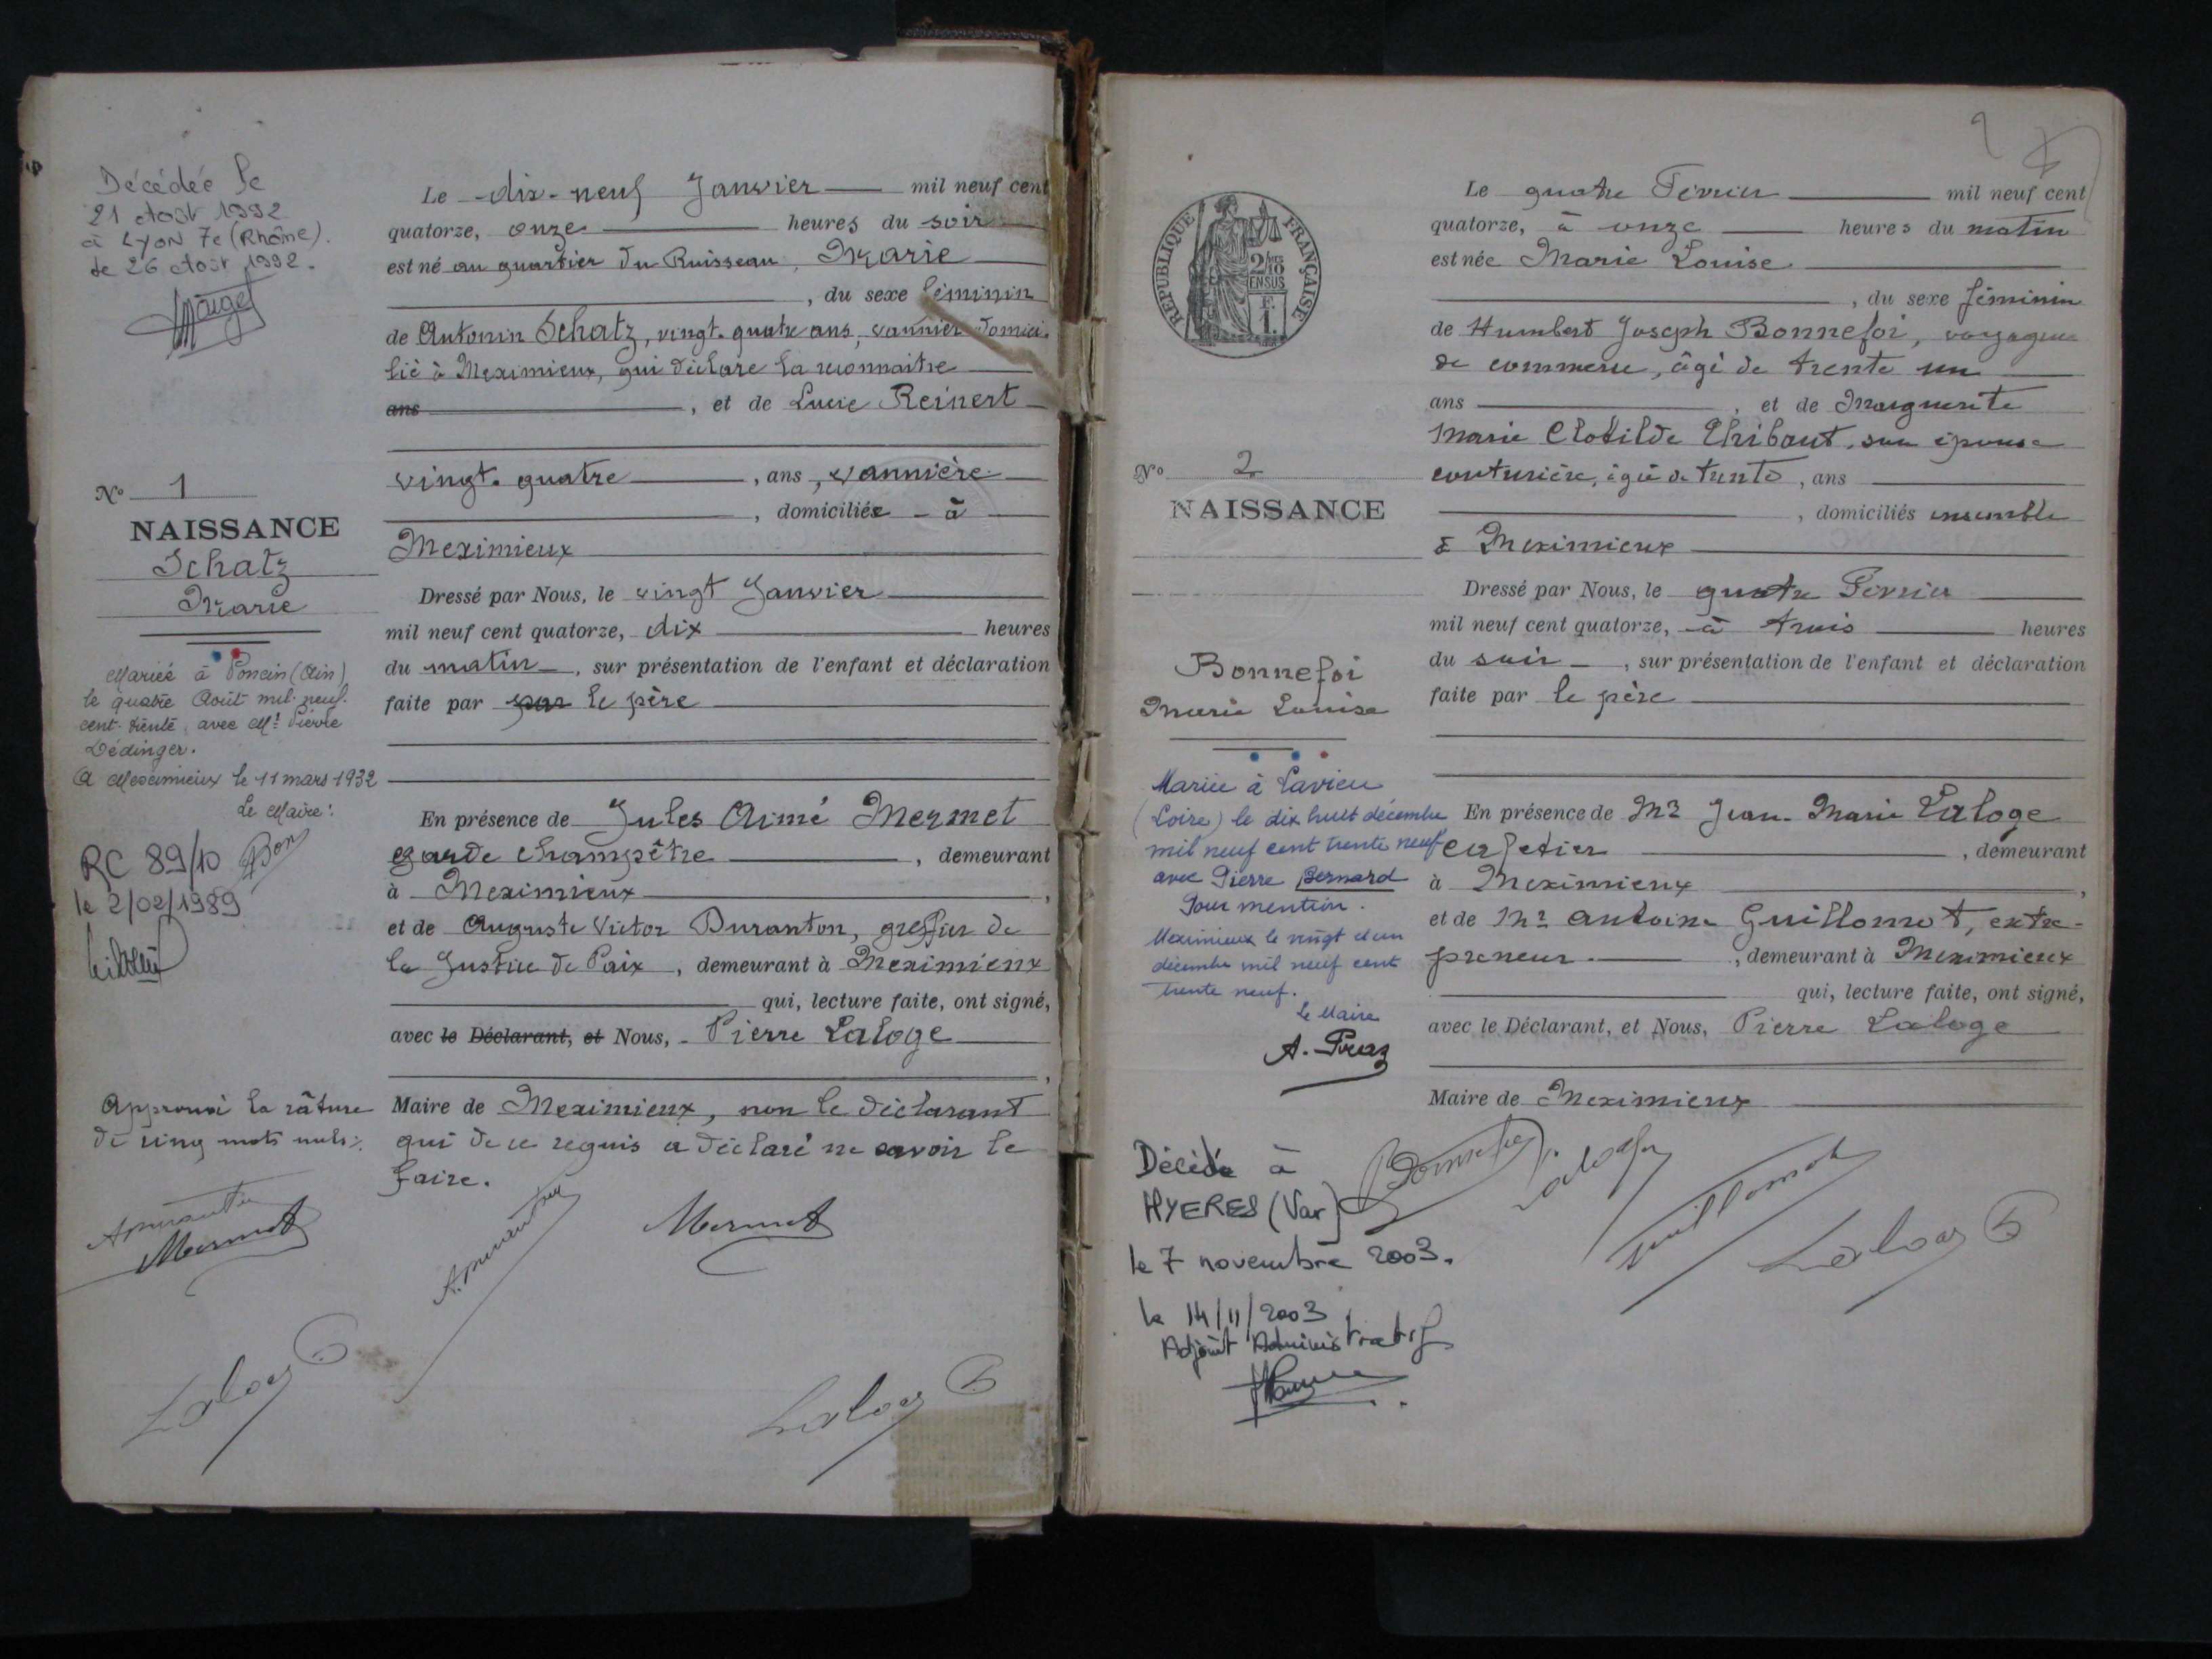 Décédée le
21 Août 1992
à Lyon 7e (Rhône).
le 26 Août 1992.
No 1
NAISSANCE
Schatz
Marie
Mariée à Poncin (Ain)
le quatre Août mil neuf
cent trente, avec Mr Pierre
Dédinger.
A Meximieux le 11 mars 1932
Le Maire:
RC 89/10
le 2/02/1989
Approuvé la râture
de cinq mots nuls
Mermet
Le dix-neuf Janvier mil neuf cent
quatorze, onze heures du soir
est né au quartier du Ruisseau, Marie
, du sexe féminin
de Antonin Schatz, vingt-quatre ans, vannier domici-
lié à Meximieux, qui déclare la reconnaitre
ans , et de Lucie Reinert
vingt-quatre , ans, vannière
, domiciliée - à
Meximieux
Dressé par Nous, le vingt Janvier
mil neuf cent quatorze, dix heures
du matin , sur présentation de l'enfant et déclaration
faite par par le père
En présence de Jules Aimé Mermet
garde champêtre , demeurant
à Meximieux ,
et de Auguste Victor Duranton, greffier de
la Justice de Paix , demeurant à Meximieux
qui, lecture faite, ont signé,
avec le Déclarant, et Nous, - Pierre Laloge
,
Maire de Meximieux, non le déclarant
qui de ce requis a déclaré ne savoir le
faire.
Mermet
2
REPUBLIQUE FRANÇAISE
2/10
EN SUS
No 2
NAISSANCE
Bonnefoi
Marie Louise
Mariée à Lavieu
(Loire) le dix huit décembre
mil neuf cent trente neuf
avec Pierre Bernard
Pour mention.
Meximieux le vingt et un
décembre mil neuf cent
trente neuf.
Le Maire
Décédée à
HYERES (Var)
le 7 novembre 2003.
le 14/11/2003
Adjoint Administratif
Le quatre Février mil neuf cent
quatorze, à onze heures du matin
est née Marie Louise
, du sexe féminin
de Humbert Joseph Bonnefoi, voyageur
de commerce, âgé de trente un
ans , et de Marguerite
Marie Clotilde Thibaut, son épouse
couturière, âgée de trente , ans
, domiciliés ensemble
à Meximieux
Dressé par Nous, le quatre Février
mil neuf cent quatorze, à trois heures
du soir , sur présentation de l'enfant et déclaration
faite par le père
En présence de Mr Jean-Marie Laloge
cafetier , demeurant
à Meximieux ,
et de Mr Antoine Guillomot, entre-
preneur , demeurant à Meximieux
qui, lecture faite, ont signé,
avec le Déclarant, et Nous, Pierre Laloge
Maire de Meximieux
Guillomot